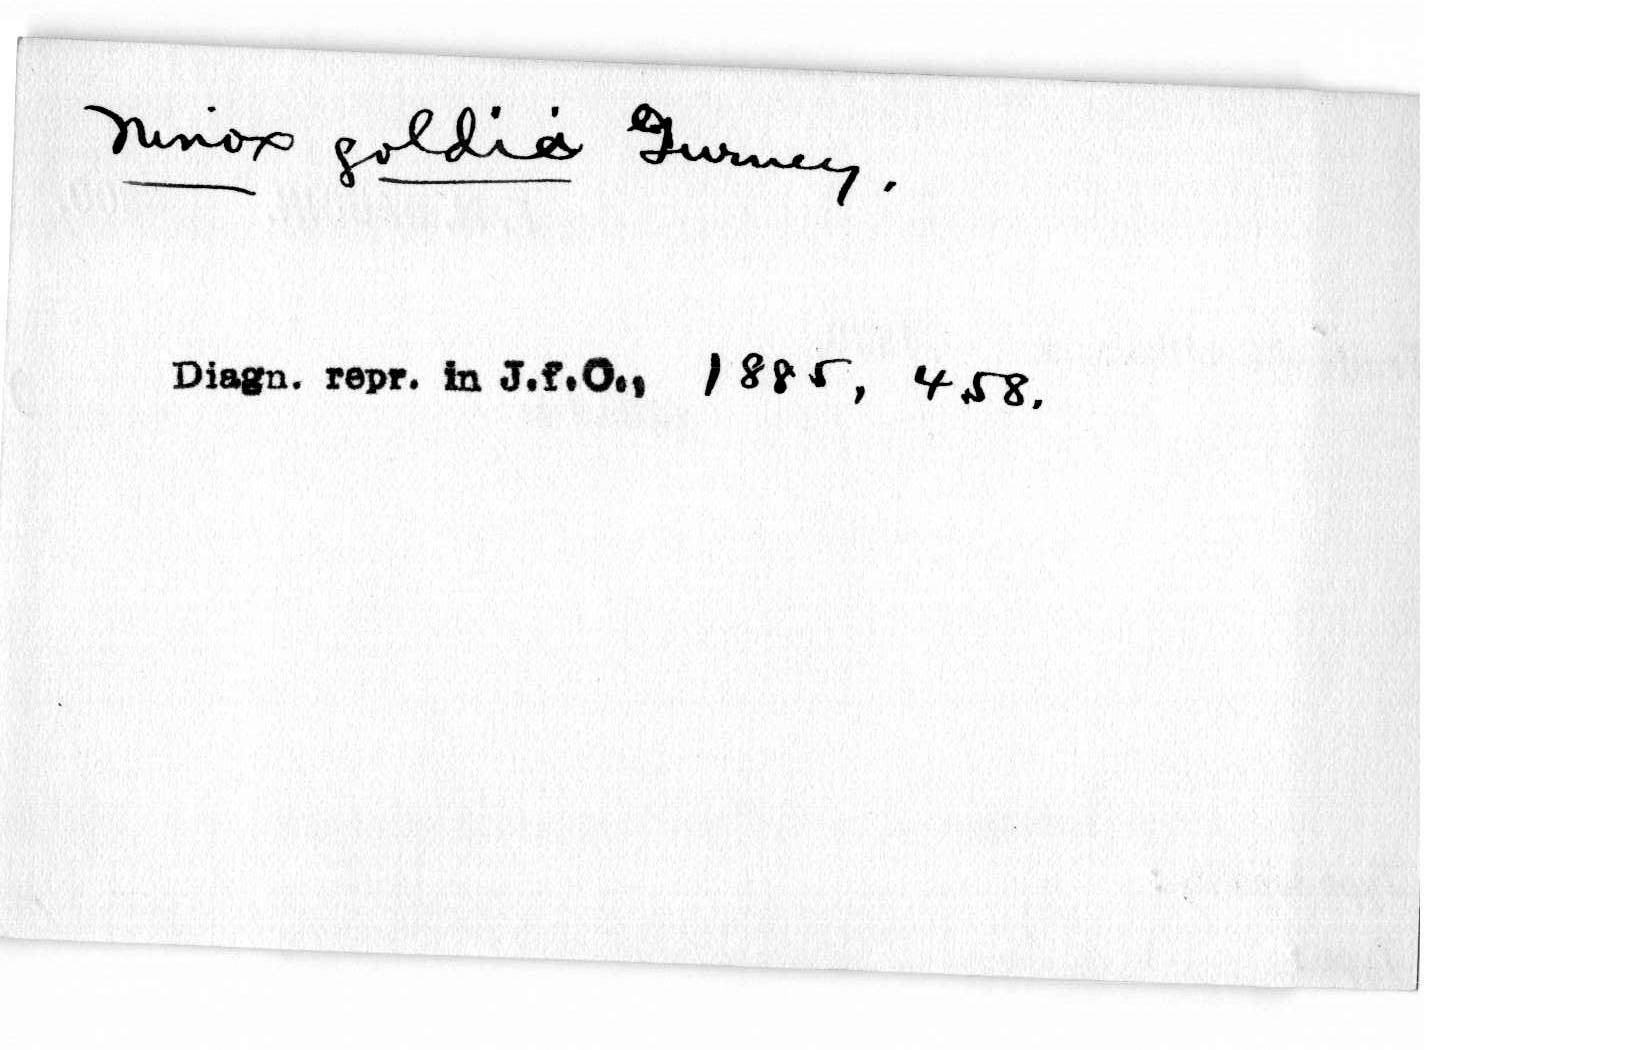 Ninox goldii Gurney.
Diagn. repr. in J.f.O., 1885, 458.